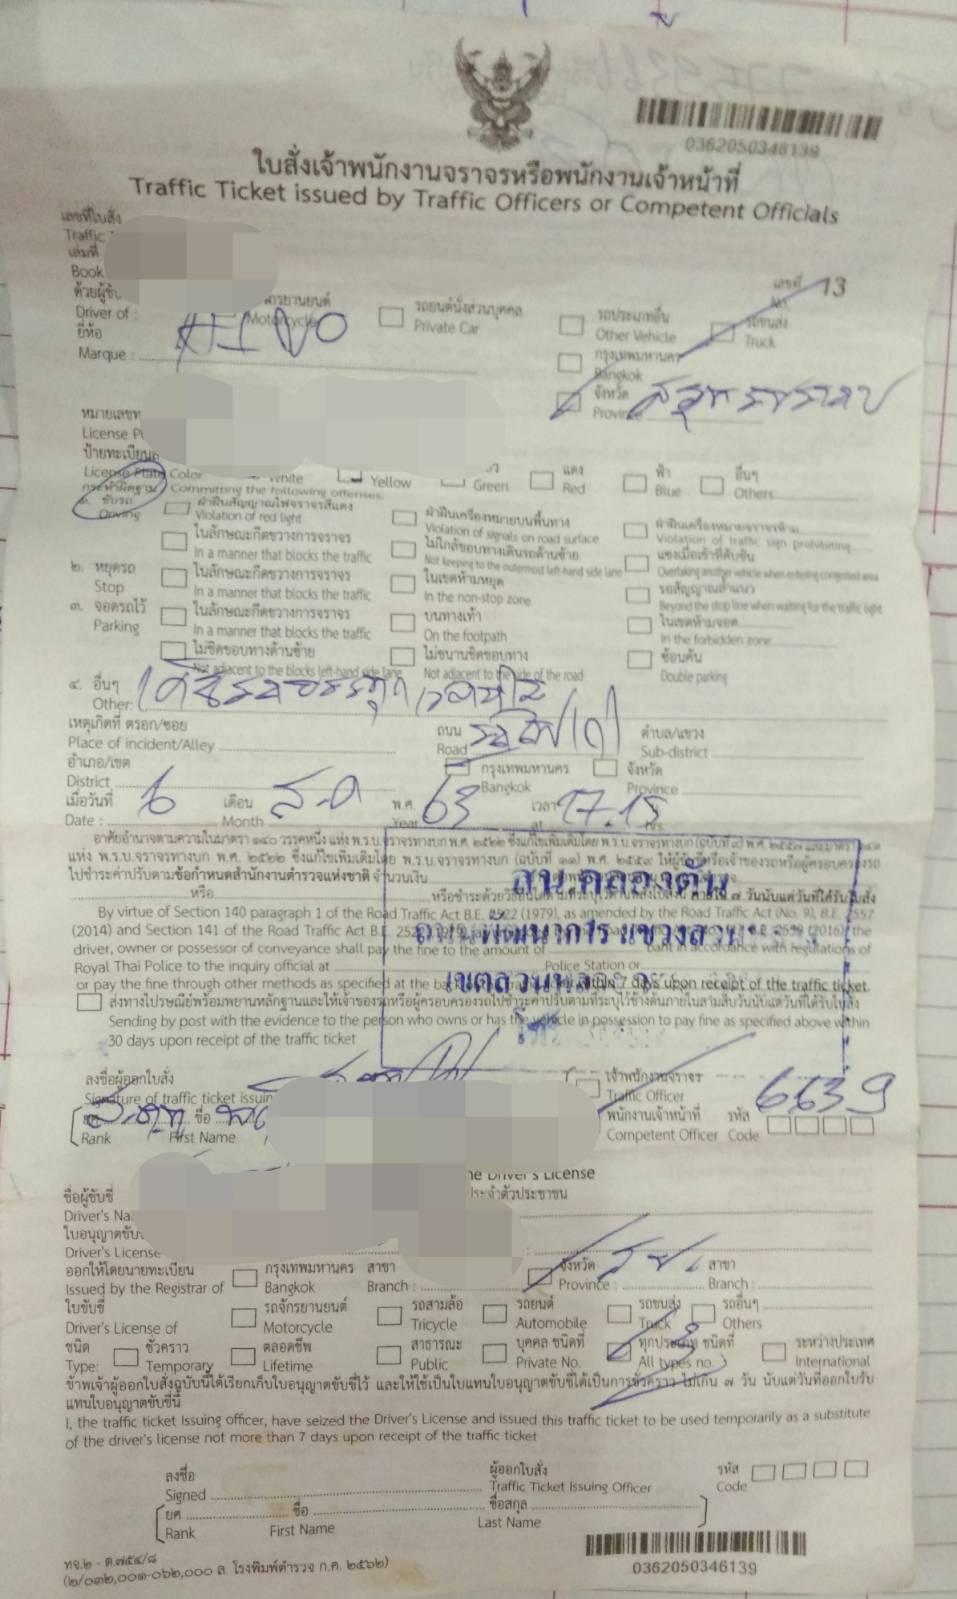 0362050346139
ใบสั่งเจ้าพนักงานจราจรหรือพนักงานเจ้าหน้าที่
Traffic Ticket issued by Traffic Officers or Competent Officials
เลขที่ใบสั่ง
Traffic
เล่มที่ เลขที่ 13
Book No.
ด้วยผู้ขับ รถยนต์นั่งส่วนบุคคล รถประเภทอื่น รถขนส่ง
Driver of : Motorcycle Private Car Other Vehicle Truck
ยี่ห้อ HINO กรุงเทพมหานคร
Marque : Bangkok
จังหวัด
Province
หมายเลขท
License Pl
ป้ายทะเบียน แดง ฟ้า อื่นๆ
License Plate Color White Yellow Green Red Blue Others
กระทำผิดฐาน Committing the following offenses
๑. ขับรถ ฝ่าฝืนสัญญาณไฟจราจรสีแดง ฝ่าฝืนเครื่องหมายบนพื้นทาง ฝ่าฝืนเครื่องหมายจราจรห้าม
Driving Violation of red light Violation of signals on road surface Violation of traffic sign prohibiting
ในลักษณะกีดขวางการจราจร ไม่ใกล้ขอบทางเดินรถด้านซ้าย แซงเมื่อเข้าที่คับขัน
In a manner that blocks the traffic Not keeping to the outermost left-hand side lane Overtaking another vehicle when entering congested area
๒. หยุดรถ ในลักษณะกีดขวางการจราจร ในเขตห้ามหยุด รอสัญญาณล้ำแนว
Stop In a manner that blocks the traffic In the non-stop zone Beyond the stop line when waiting for the traffic light
๓. จอดรถไว้ ในลักษณะกีดขวางการจราจร บนทางเท้า ในเขตห้ามจอด
Parking In a manner that blocks the traffic On the footpath In the forbidden zone
ไม่ชิดขอบทางด้านซ้าย ไม่ขนานชิดขอบทาง ซ้อนคัน
Not adjacent to the blocks left-hand side lane Not adjacent to the side of the road Double parking
๔. อื่นๆ
Other:
เหตุเกิดที่ ตรอก/ซอย ถนน รัชดา ตำบล/แขวง
Place of incident/Alley Road Sub-district
อำเภอ/เขต กรุงเทพมหานคร จังหวัด
District Bangkok Province
เมื่อวันที่ 6 เดือน ส.ค พ.ศ. 63 เวลา 17.15
Date : Month Year at Hrs.
อาศัยอำนาจตามความในมาตรา ๑๔๐ วรรคหนึ่ง แห่ง พ.ร.บ.จราจรทางบก พ.ศ. ๒๕๒๒ ซึ่งแก้ไขเพิ่มเติมโดย พ.ร.บ.จราจรทางบก (ฉบับที่ ๙) พ.ศ. ๒๕๕๗ และมาตรา ๑๔๑
แห่ง พ.ร.บ.จราจรทางบก พ.ศ. ๒๕๒๒ ซึ่งแก้ไขเพิ่มเติมโดย พ.ร.บ.จราจรทางบก (ฉบับที่ ๑๑) พ.ศ. ๒๕๕๙ ให้ผู้ขับขี่หรือเจ้าของรถหรือผู้ครอบครองรถ
ไปชำระค่าปรับตามข้อกำหนดสำนักงานตำรวจแห่งชาติ จำนวนเงิน
หรือ หรือชำระด้วยวิธีอื่น ภายใน ๗ วันนับแต่วันที่ได้รับใบสั่ง
สน.คลองตัน
ถ.พัฒนาการ แขวงสวน
เขตสวนหลวง
โทร
By virtue of Section 140 paragraph 1 of the Road Traffic Act B.E. 2522 (1979), as amended by the Road Traffic Act (No. 9), B.E. 2557
(2014) and Section 141 of the Road Traffic Act B.E. 2522 (2016) the
driver, owner or possessor of conveyance shall pay the fine to the amount of baht in accordance with regulations of
Royal Thai Police to the inquiry official at Police Station or
or pay the fine through other methods as specified at the back within 7 days upon receipt of the traffic ticket.
ส่งทางไปรษณีย์พร้อมพยานหลักฐานและให้เจ้าของรถหรือผู้ครอบครองรถไปชำระค่าปรับตามที่ระบุไว้ข้างต้นภายในสามสิบวันนับแต่วันที่ได้รับใบสั่ง
Sending by post with the evidence to the person who owns or has the vehicle in possession to pay fine as specified above within
30 days upon receipt of the traffic ticket
ลงชื่อผู้ออกใบสั่ง เจ้าพนักงานจราจร
Signature of traffic ticket issuing Traffic Officer
ยศ ชื่อ พนักงานเจ้าหน้าที่ รหัส 6639
Rank First Name Competent Officer Code
the Driver's License
ประจำตัวประชาชน
ชื่อผู้ขับขี่
Driver's Na
ใบอนุญาตขับ
Driver's License
ออกให้โดยนายทะเบียน กรุงเทพมหานคร สาขา จังหวัด สาขา
Issued by the Registrar of Bangkok Branch : Province : Branch :
ใบขับขี่ รถจักรยานยนต์ รถสามล้อ รถยนต์ รถขนส่ง รถอื่นๆ
Driver's License of Motorcycle Tricycle Automobile Truck Others
ชนิด ชั่วคราว ตลอดชีพ สาธารณะ บุคคล ชนิดที่ ทุกประเภท ชนิดที่ 3 ระหว่างประเทศ
Type: Temporary Lifetime Public Private No. All types no. International
ข้าพเจ้าผู้ออกใบสั่งฉบับนี้ได้เรียกเก็บใบอนุญาตขับขี่ไว้ และให้ใช้เป็นใบแทนใบอนุญาตขับขี่ได้เป็นการชั่วคราว ไม่เกิน ๗ วัน นับแต่วันที่ออกใบรับ
แทนใบอนุญาตขับขี่นี้
I, the traffic ticket Issuing officer, have seized the Driver's License and issued this traffic ticket to be used temporarily as a substitute
of the driver's license not more than 7 days upon receipt of the traffic ticket
ลงชื่อ ผู้ออกใบสั่ง รหัส
Signed Traffic Ticket Issuing Officer Code
ยศ ชื่อ ชื่อสกุล
Rank First Name Last Name
ทจ.๒ - ต.๗๕๔/๘
(๒/๐๓๒,๐๐๑-๐๖๒,๐๐๐ ล. โรงพิมพ์ตำรวจ ก.ค. ๒๕๖๒)
0362050346139